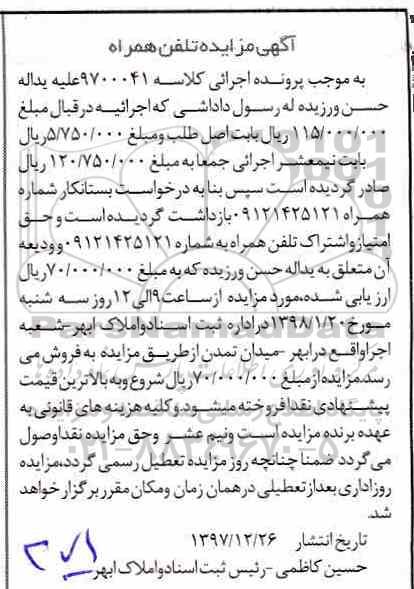 آگهی مزایده تلفن همراه
به موجب پرونده اجرائی کلاسه ۹۷۰۰۰۴۱علیه یداله
حسن ورزیده له رسول داداشی که اجرائیه در قبال مبلغ
۱۱۵/۰۰۰/۰۰۰ ریال بابت اصل طلب ومبلغ ۵/۷۵۰/۰۰۰ریال
بابت نیمعشر اجرائی جمعا به مبلغ ۱۲۰/۷۵۰/۰۰۰ ریال
صادر گردیده است سپس بنا به درخواست بستانکار شماره
همراه ۰۹۱۲۱۴۲۵۱۲۱بازداشت گردیده است و حق
امتیاز واشتراک تلفن همراه به شماره ۰۹۱۲۱۴۲۵۱۲۱وودیعه
آن متعلق به یداله حسن ورزیده که به مبلغ ۷۰/۰۰۰/۰۰۰ریال
ارزیابی شده،مورد مزایده از ساعت۹الی۱۲روز سه شنبه
مورخ۱۳۹۸/۱/۲۰دراداره ثبت اسنادواملاک ابهر-شعبه
اجراواقع درابهر -میدان تمدن از طریق مزایده به فروش می
رسد.مزایده از مبلغ ۷۰/۰۰۰/۰۰۰ریال شروع وبه بالاترین قیمت
پیشنهادی نقدا فروخته میشود.وکلیه هزینه های قانونی به
عهده برنده مزایده است ونیم عشر وحق مزایده نقدا وصول
می گردد ضمنا چنانچه روز مزایده تعطیل رسمی گردد،مزایده
روز اداری بعداز تعطیلی در همان زمان ومکان مقرر برگزار خواهد
شد.
تاریخ انتشار ۱۳۹۷/۱۲/۲۶
حسین کاظمی -رئیس ثبت اسنادواملاک ابهر
ParsNamadData
۰۲۱-۸۸۳۴۹۶۷۰-۵